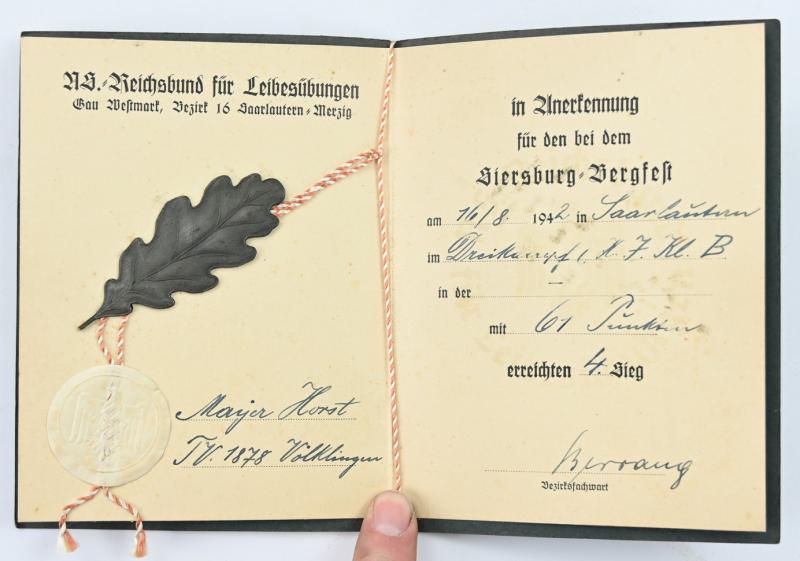 NS.-Reichsbund für Leibesübungen
Gau Westmark, Bezirk 16 Saarlautern-Merzig
Mayer Horst
TV. 1878 Völklingen
in Anerkennung
für den bei dem
Siersburg-Bergfest
am 16/8. 1942 in Saarlautern
im Dreikampf Kl. B
in der –
mit 61 Punkten
erreichten 4. Sieg
Berrang
Bezirksfachwart